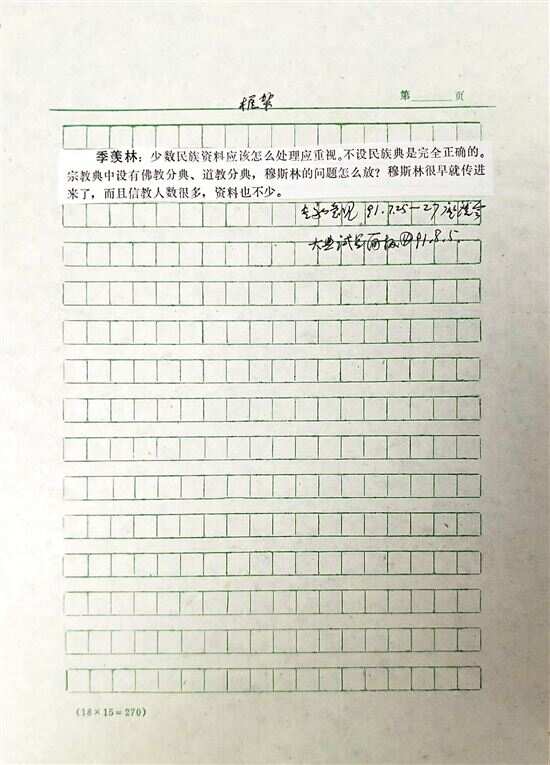 框架
第 页
季羡林:少数民族资料应该怎么处理应重视。不设民族典是完全正确的。
宗教典中设有佛教分典、道教分典,穆斯林的问题怎么放?穆斯林很早就传进
来了,而且信教人数很多,资料也不少。
专家意见 91.7.25—27座谈会
大典试写 ②91.8.5.
(18×15=270)